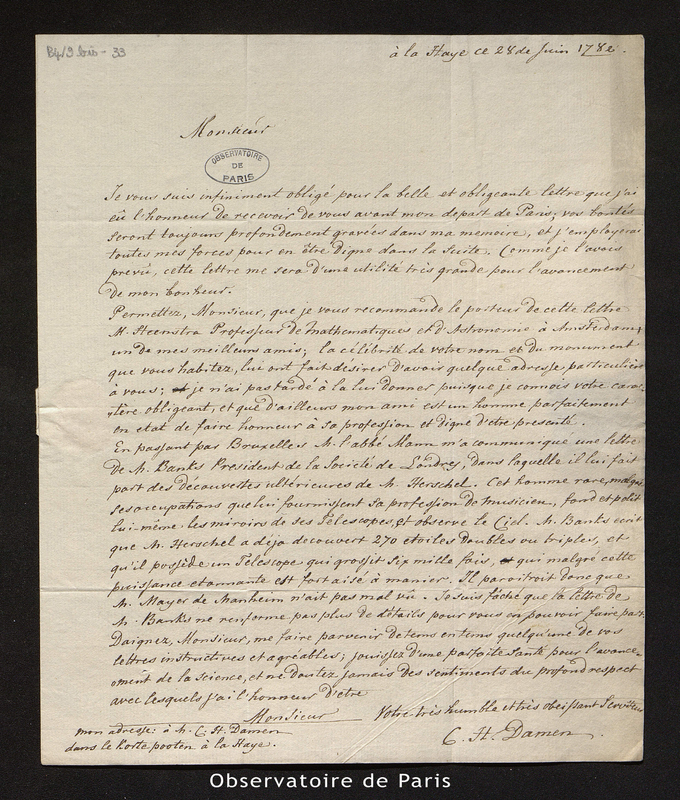 B4/9 bis - 33
à la Haye ce 28 de Juin 1782.
Monsieur
OBSERVATOIRE
DE
PARIS
Je vous suis infiniment obligé pour la belle et obligeante lettre que j'ai
eû l'honneur de recevoir de vous avant mon depart de Paris; vos bontés
seront toujours profondement gravées dans ma memoire, et j'employerai
toutes mes forces pour en être digne dans la suite. Comme je l'avois
prevû, cette lettre me sera d'une utilité très grande pour l'avancement
de mon bonheur.
Permettez, Monsieur, que je vous recommande le porteur de cette lettre
M. Heemstra Professeur de Mathematiques et d'Astronomie à Amsterdam,
un de mes meilleurs amis; la célébrité de votre nom et du monument
que vous habitez, lui ont fait désirer d'avoir quelque adresse particuliere
à vous; je n'ai pas tardé à la lui donner puisque je connois votre carac-
tère obligeant, et que d'ailleurs mon ami est un homme parfaitement
en etat de faire honneur à sa profession et digne d'etre presenté.
En passant par Bruxelles M. l'abbé Mann m'a communiqué une lettre
de M. Banks President de la Societé de Londres, dans laquelle il lui fait
part des découvertes ultérieures de M. Herschel. Cet homme rare, malgré
ses occupations que lui fournissent sa profession de musicien, fond et polit
lui-même les miroirs de ses Telescopes, et observe le Ciel. M. Banks ecrit
que M. Herschel a déja decouvert 270 etoiles doubles ou triples, et
qu'il possède un Telescope qui grossit six mille fois, qui malgré cette
puissance etonnante est fort aisé à manier. Il paroitroit donc que
M. Mayer de Manheim n'ait pas mal vû. Je suis fâché que la lettre de
M. Banks ne renferme pas plus de détails pour vous en pouvoir faire part.
Daignez, Monsieur, me faire parvenir de tems en tems quelqu'une de vos
lettres instructives et agréables; jouissez d'une parfaite santé pour l'avance-
ment de la science, et ne doutez jamais des sentiments du profond respect
avec lesquels j'ai l'honneur d'etre
Monsieur
Votre très humble et très obeissant Serviteur
C. H. Damen.
mon adresse: à M. C. H. Damen
dans le Korte pooten à la Haye.
Observatoire de Paris